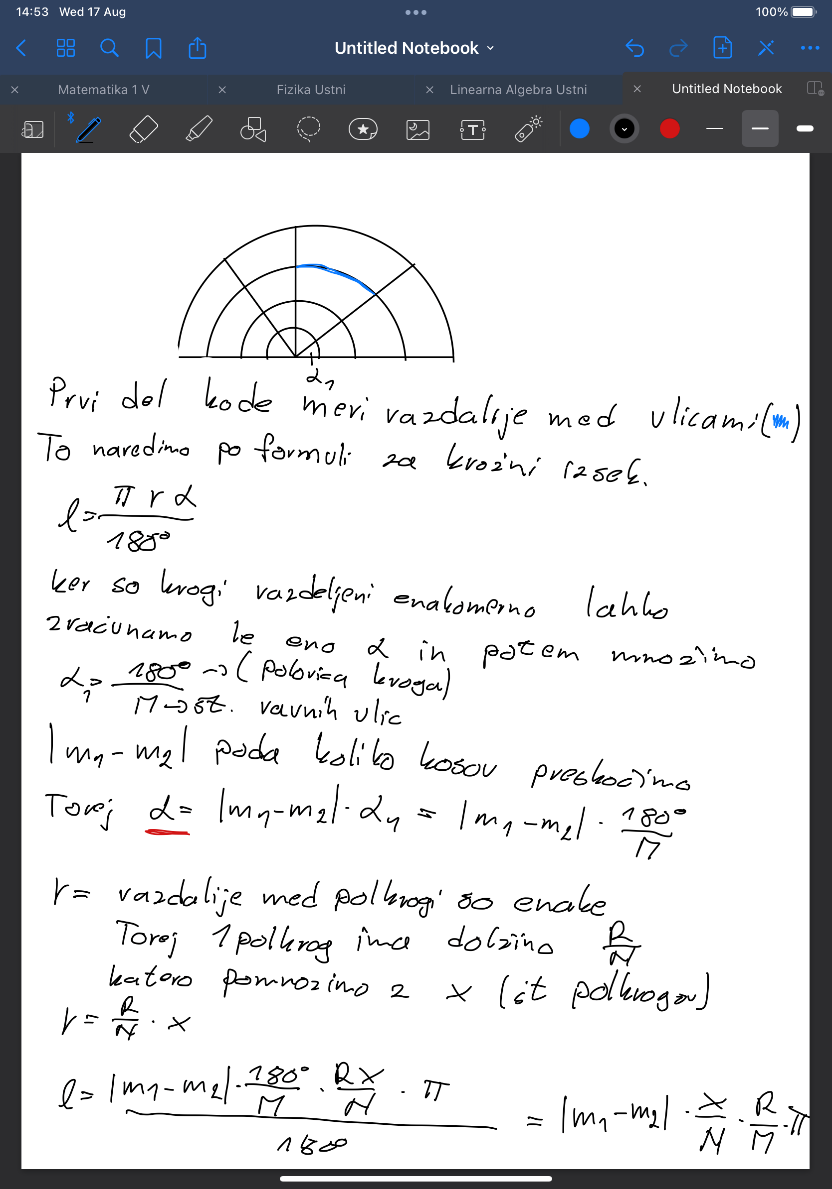 14:53 Wed 17 Aug
100%
Untitled Notebook
Matematika 1 V
Fizika Ustni
Linearna Algebra Ustni
Untitled Notebook
α₁
Prvi del kode meri razdalije med ulicami ( )
To naredimo po formuli za krožni izsek.
l = π r α / 180°
ker so krogi razdeljeni enakomerno lahko
zračunamo le eno α in potem množimo
α₁ = 180° / M → (polovica kroga)
M → št. ravnih ulic
|m₁ - m₂| poda koliko kosov preskočimo
Torej α = |m₁ - m₂| · α₁ = |m₁ - m₂| · 180° / M
r = razdalije med polkrogi so enake
Torej 1 polkrog ima dolžino R / N
katero pomnozimo z x (št polkrogov)
r = R / N · x
l = |m₁ - m₂| · 180° / M · R x / N · π / 180 = |m₁ - m₂| · x / N · R / M · π